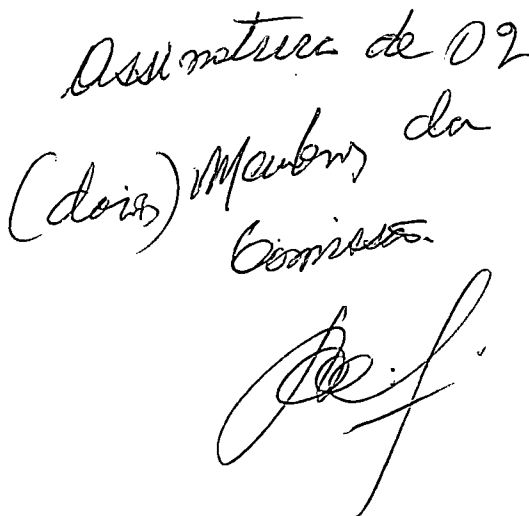 Assinatura de 02
(dois) Membros da
Comissão.